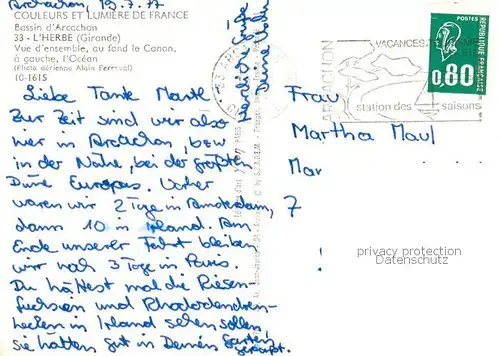 Arcachon, 19.7.77
COULEURS ET LUMIÈRE DE FRANCE
Bassin d'Arcachon
33 - L'HERBE (Gironde)
Vue d'ensemble, au fond le Canon,
à gauche, l'Océan
(Photo aérienne Alain Perceval)
10-1615
Liebe Tante Martl
Zur Zeit sind wir also
hier in Arcachon, bzw
in der Nähe, bei der größten
Düne Europas. Vorher
waren wir 2 Tage in Amsterdam,
dann 10 in Irland. Am
Ende unserer Fahrt bleiben
wir noch 3 Tage in Paris.
Du hättest mal die Riesen-
fuchsien und Rhododendren-
hecken in Irland sehen sollen,
sie hätten gut in Deinen Garten
gepaßt.
Herzliche Grüße
Deine
POSTES
0,80
REPUBLIQUE FRANÇAISE
VACANCES
ARCACHON
station des 4 saisons
Frau
Martha Maul
Mar
7
!
privacy protection
Datenschutz